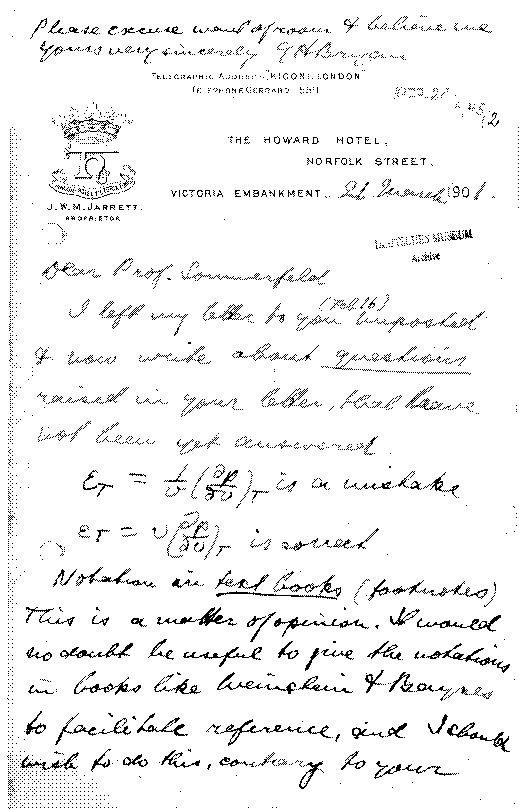 Please excuse want of room & believe me
yours very sincerely G H Bryan
TELEGRAPHIC ADDRESS "RIGONI, LONDON"
TELEPHONE GERRARD
THE HOWARD HOTEL,
NORFOLK STREET,
VICTORIA EMBANKMENT. March 1901.
J. W. M. JARRETT.
PROPRIETOR
DEUTSCHES MUSEUM
Archive
Dear Prof. Sommerfeld
I left my letter to you (Feb 26) unposted
& now write about questions
raised in your letter, that have
not been yet answered
ε_T = 1/v (∂p/∂v)_T is a mistake
e_T = v (∂p/∂v)_T is correct
Notation in text books (footnotes)
This is a matter of opinion. It would
no doubt be useful to give the notations
in books like Weinstein & Baynes
to facilitate reference, and I should
wish to do this, contrary to your